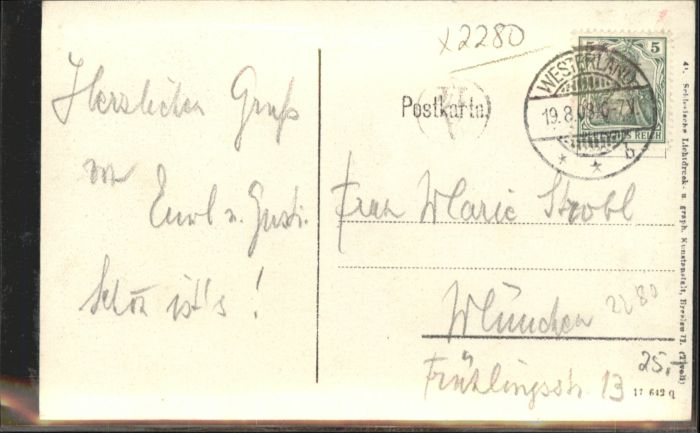 x2280
Herzlichen Gruß
von
Emil u. Gusti.
Schön ist's!
Postkarte.
5 5
WESTERLAND
19.8.09. 6-7 V.
b
REICH
Frau Marie Strobl
München
2280
Frühlingsstr. 13
25.-
17 642 a
Schlesische Lichtdruck- u. graph. Kunstanstalt, Breslau 17. (Tivoli)